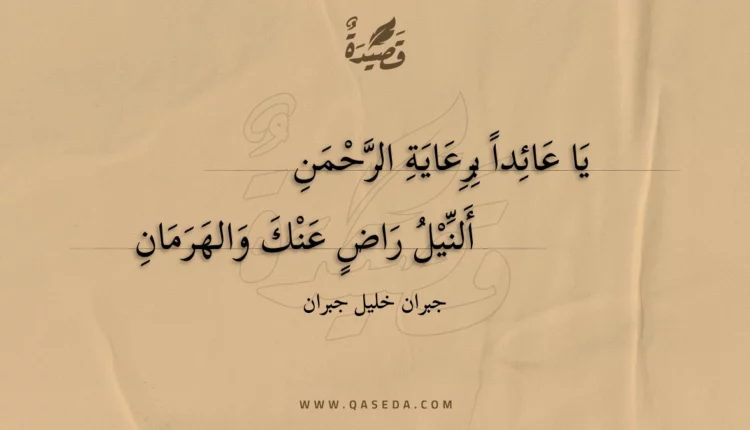 قَصِيْدَةٌ
يَا عَائِداً بِرِعَايَةِ الرَّحْمَنِ
أَلنِّيْلُ رَاضٍ عَنْكَ وَالهَرَمَانِ
جبران خليل جبران
WWW.QASEDA.COM